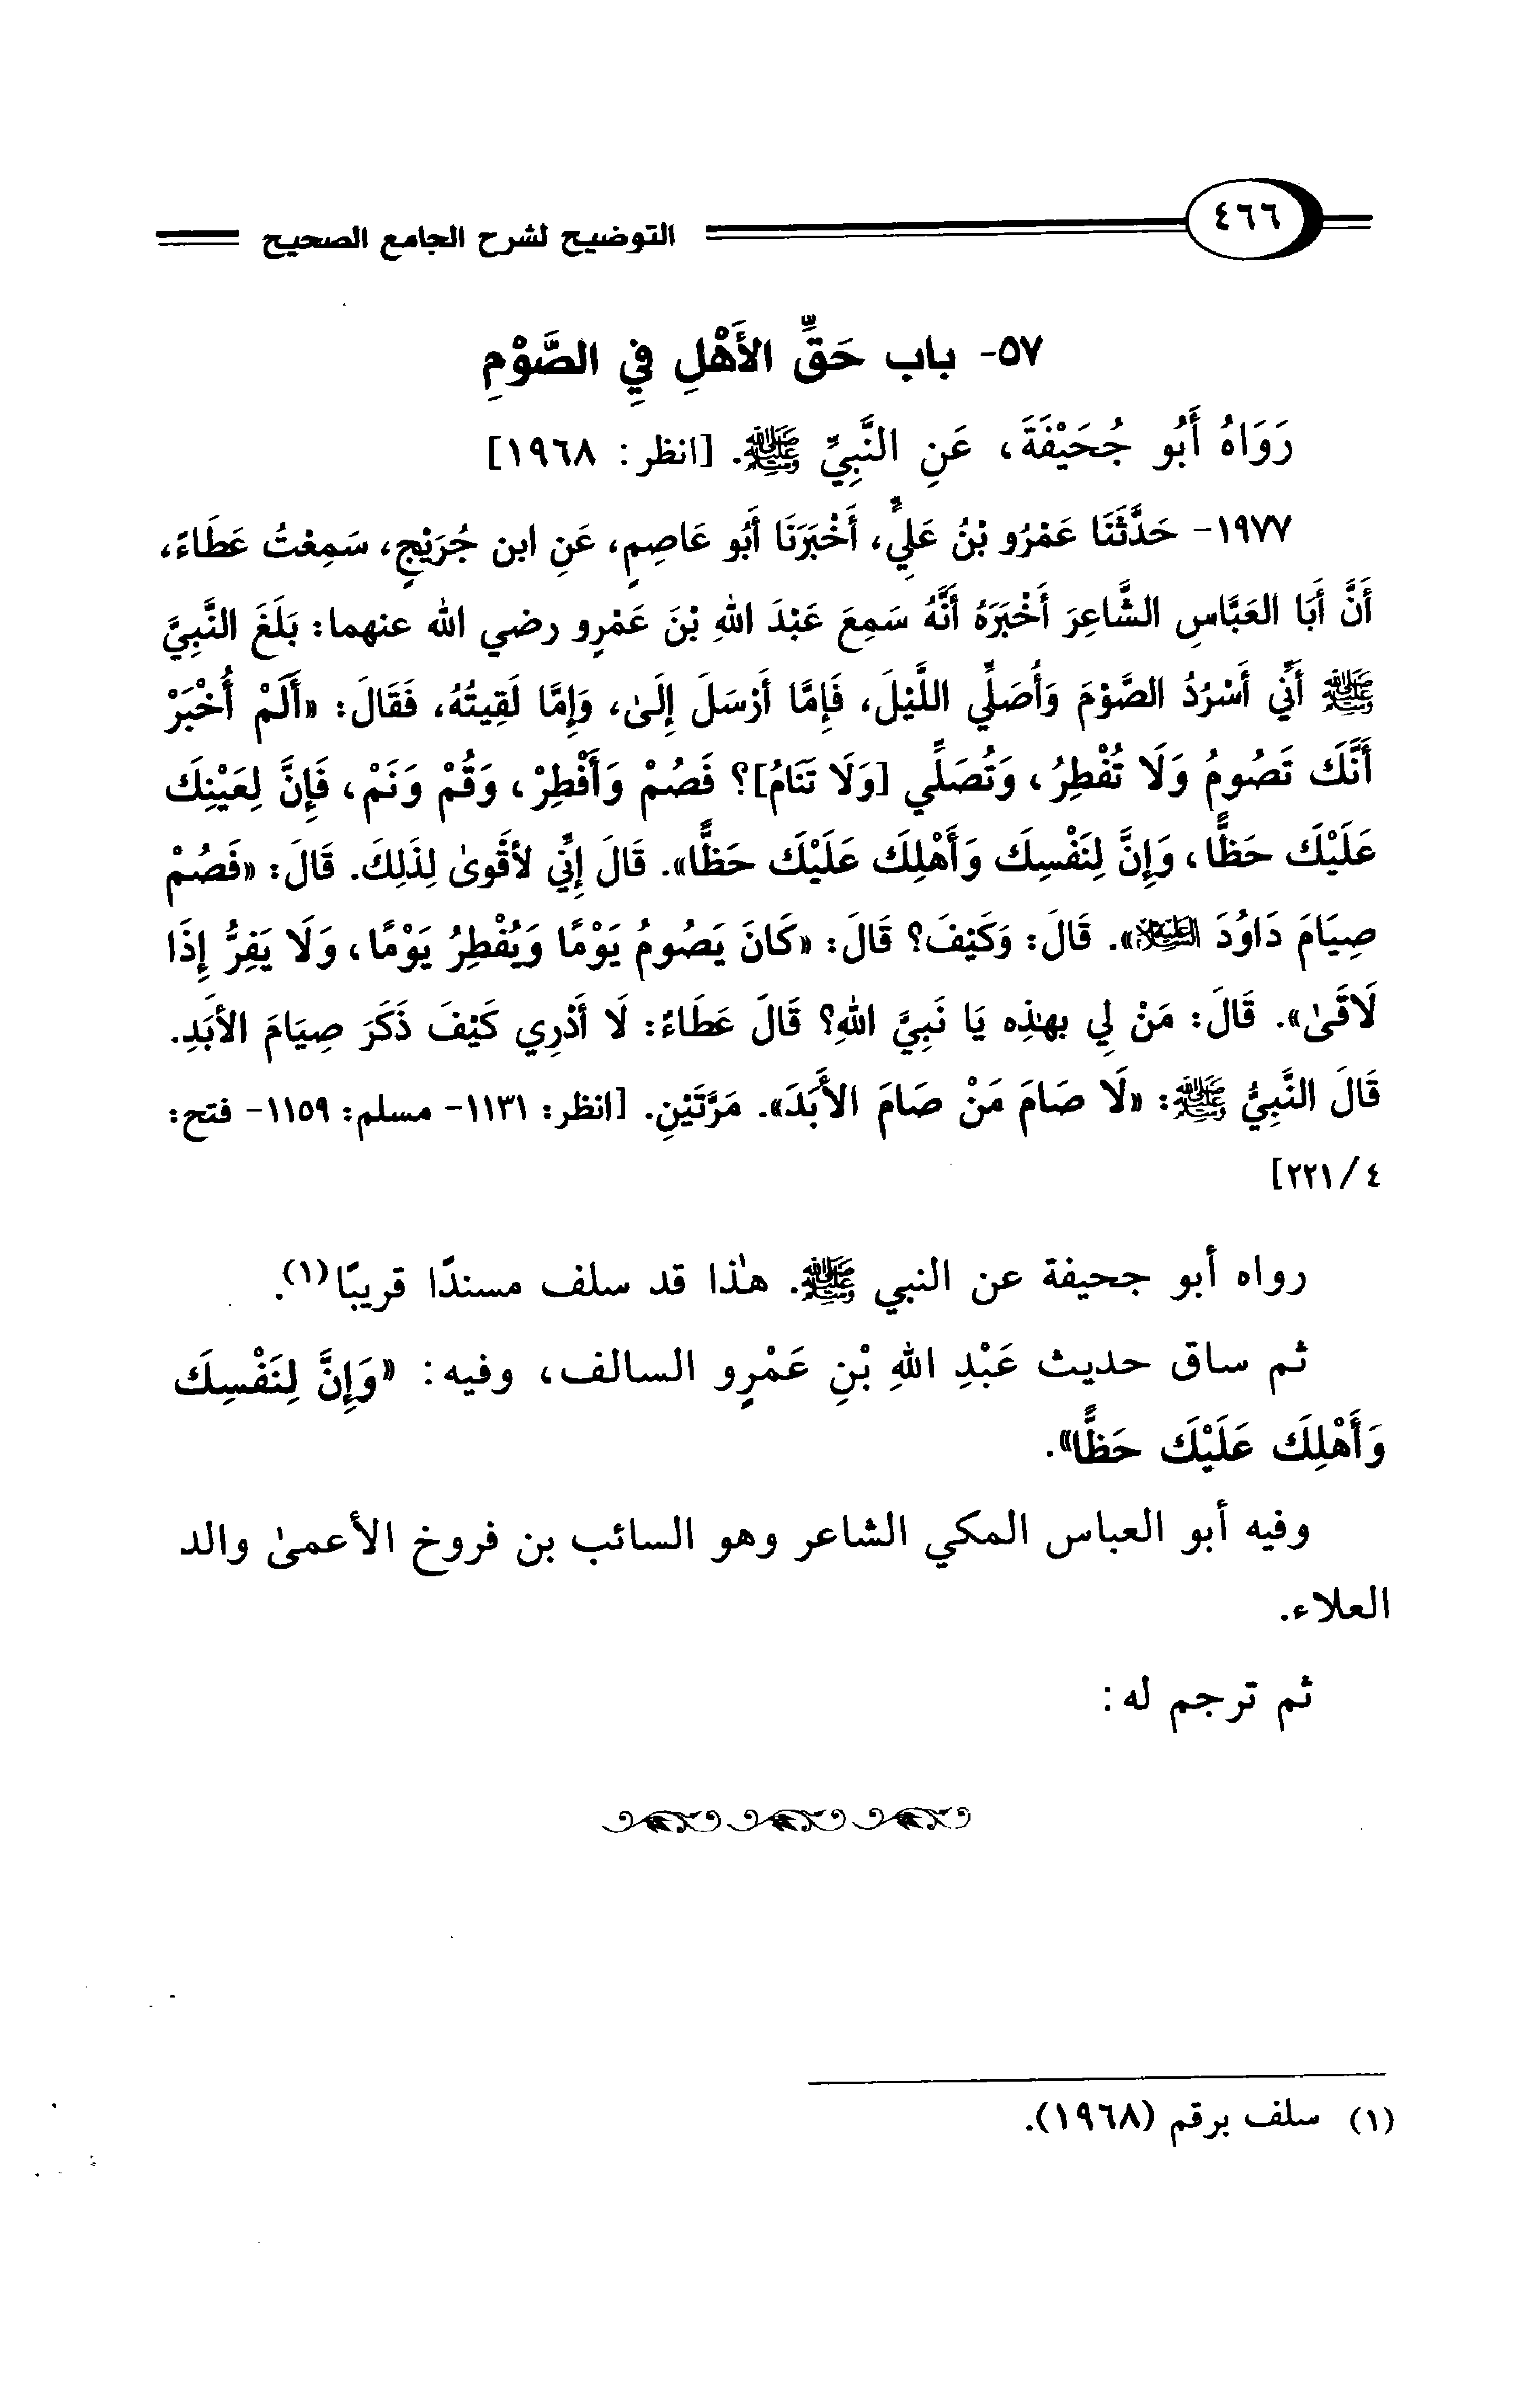 ٤٦٦
التوضيح لشرح الجامع الصحيح
٥٧- باب حَقِّ الأَهْلِ فِي الصَّوْمِ
رَوَاهُ أَبُو جُحَيْفَةَ، عَنِ النَّبِيِّ ﷺ. [انظر: ١٩٦٨]
١٩٧٧- حَدَّثَنَا عَمْرُو بْنُ عَلِيٍّ، أَخْبَرَنَا أَبُو عَاصِمٍ، عَنِ ابن جُرَيْجٍ، سَمِعْتُ عَطَاءً،
أَنَّ أَبَا العَبَّاسِ الشَّاعِرَ أَخْبَرَهُ أَنَّهُ سَمِعَ عَبْدَ اللهِ بْنَ عَمْرٍو رضي الله عنهما: بَلَغَ النَّبِيَّ
ﷺ أَنِّي أَسْرُدُ الصَّوْمَ وَأُصَلِّي اللَّيْلَ، فَإِمَّا أَرْسَلَ إِلَىٰ، وَإِمَّا لَقِيتُهُ، فَقَالَ: «أَلَمْ أُخْبَرْ
أَنَّكَ تَصُومُ وَلَا تُفْطِرُ، وَتُصَلِّي [وَلَا تَنَامُ]؟ فَصُمْ وَأَفْطِرْ، وَقُمْ وَنَمْ، فَإِنَّ لِعَيْنِكَ
عَلَيْكَ حَظًّا، وَإِنَّ لِنَفْسِكَ وَأَهْلِكَ عَلَيْكَ حَظًّا». قَالَ إِنِّي لأَقْوىٰ لِذَلِكَ. قَالَ: «فَصُمْ
صِيَامَ دَاوُدَ العَلَيْهِ السَّلَام». قَالَ: وَكَيْفَ؟ قَالَ: «كَانَ يَصُومُ يَوْمًا وَيُفْطِرُ يَوْمًا، وَلَا يَفِرُّ إِذَا
لَاقَىٰ». قَالَ: مَنْ لِي بهٰذِه يَا نَبِيَّ اللهِ؟ قَالَ عَطَاءٌ: لَا أَدْرِي كَيْفَ ذَكَرَ صِيَامَ الأَبَدِ.
قَالَ النَّبِيُّ ﷺ: «لَا صَامَ مَنْ صَامَ الأَبَدَ». مَرَّتَيْنِ. [انظر: ١١٣١- مسلم: ١١٥٩- فتح:
٤/٢٢١]
رواه أبو جحيفة عن النبي ﷺ. هٰذا قد سلف مسندًا قريبًا(١).
ثم ساق حديث عَبْدِ اللهِ بْنِ عَمْرٍو السالف، وفيه: «وَإِنَّ لِنَفْسِكَ
وَأَهْلِكَ عَلَيْكَ حَظًّا».
وفيه أبو العباس المكي الشاعر وهو السائب بن فروخ الأعمىٰ والد
العلاء.
ثم ترجم له:
(١) سلف برقم (١٩٦٨).